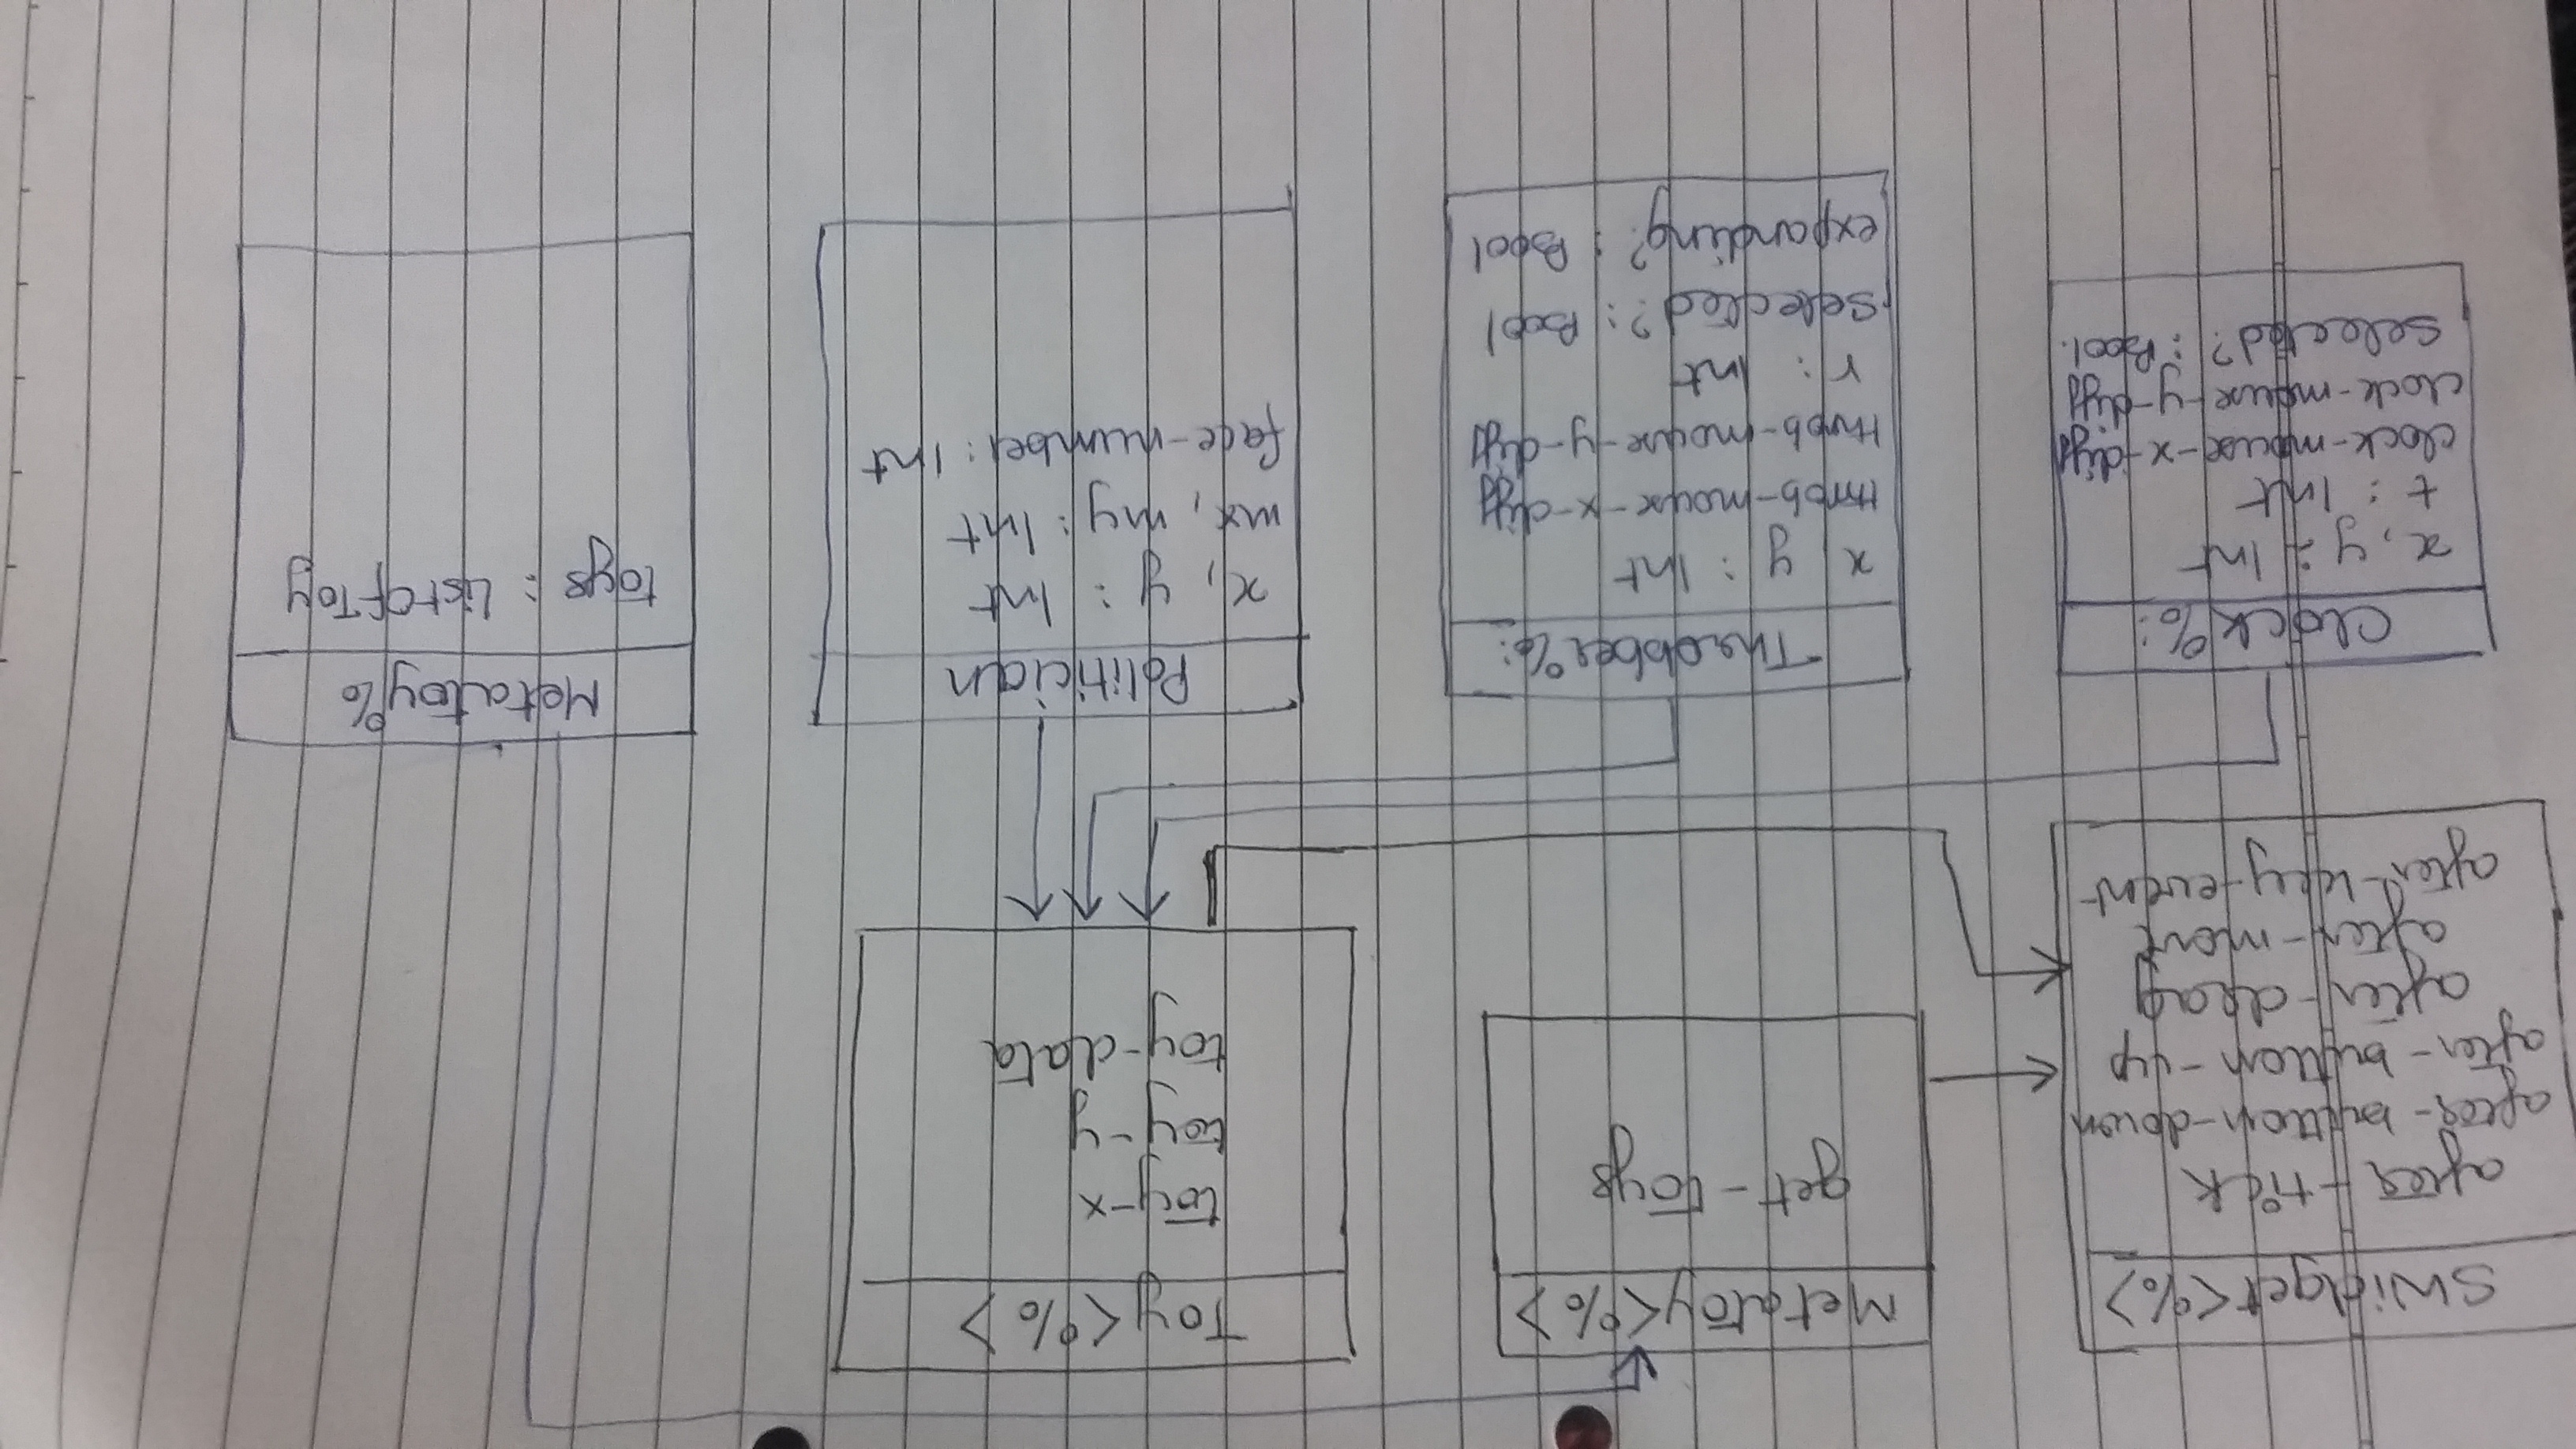 SWidget<%>
after-tick
after-button-down
after-button-up
after-drag
after-move
after-key-event
Metatoy<%>
get-toys
Toy<%>
toy-x
toy-y
toy-data
Clock%:
x, y : Int
t : Int
clock-mouse-x-diff
clock-mouse-y-diff
Selected? : Bool.
Throbber%:
x, y : Int
throb-mouse-x-diff
throb-mouse-y-diff
r : Int
Selected? : Bool
expanding? : Bool
Politician
x, y : Int
mx, my : Int
face-number : Int
Metatoy%
toys : ListOfToy